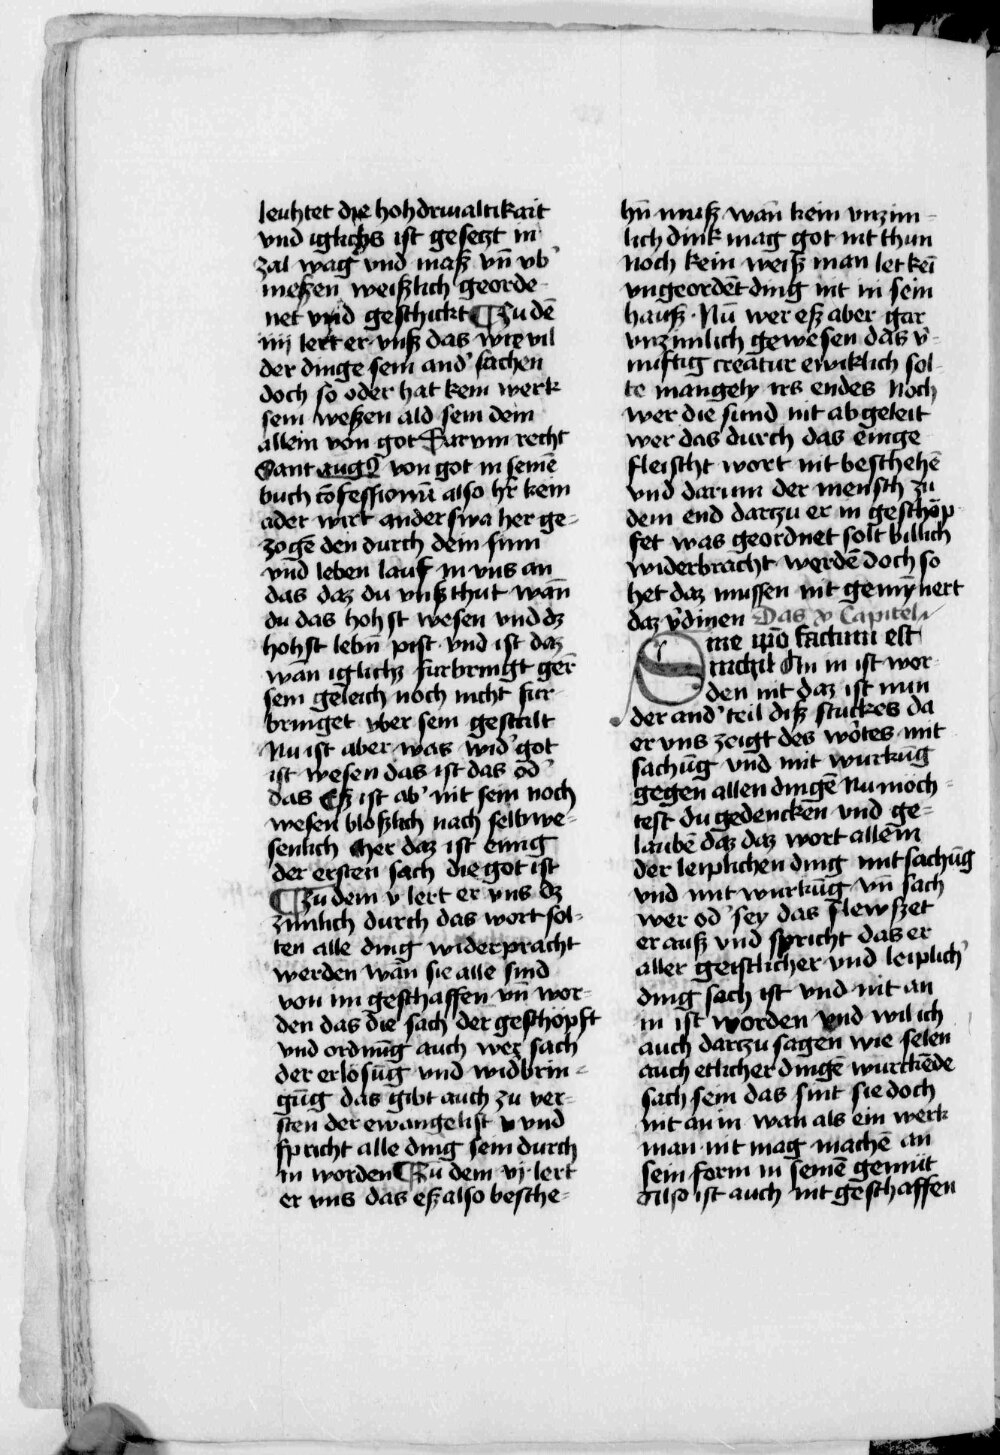 leuhtet die hohdriualtikait
vnd iglichs ist gesetzt in
zal wag vnd maß vn̄ vb᾽
meßen weißlich georde-
net vnd geschickt ¶ Zu dē
iiij lert er vnß das wie vil
der dinge sein and᾽ sachen
doch so oder hat kein werk
sein weßen ald sein dein
allein von got Darum recht
Sant aug9 von got in seinē
buch cōfessionū also hr̄ kein
ader wirt anderswa her ge-
zogē den durch dein sinn
vnd leben lauf in vns an
das daz du vnß thut wān
du das hohst wesen vnd dz
hohst lebn̄ pist vnd ist daz
wan iglichz furbringt ger̄
sein geleich noch nicht fur
bringet vber sein gestalt
Nu ist aber was wid᾽ got
ist wesen das ist das od᾽
das Eß ist ab᾽ nit sein noch
wesen bloßlich nach selbwe-
senlich Mer daz ist einig
der ersten sach die got ist
¶ Zu dem v lert er vns dz
zimlich durch das wort sol-
ten alle ding widerpracht
werden wan sie alle sind
von im geschaffen vn̄ wor-
den das die sach der geschopft
vnd ordnūg auch wer sach
der erlosūg vnd widbrin-
gūg das gibt auch zu ver-
sten der ewangelist v vnd
spricht alle ding sein durch
in worden ¶ Zu dem vj lert
er vns das eß also besche-
hn̄ muß wan̄ kein vnzim-
lich dink mag got nit thun
noch kein weiß man let kei
vngeordēt ding nit in sein
hauß · Nu wer eß aber gar
vnzimlich gewesen das v᾽-
nuftig creatur ewiklich sol-
te mangely irs endes Noch
wer die sund nit abgeleit
wer das durch das einge
fleischt wort nit beschehē
vnd darum der mensch zu
dem end darzu er in geschöp
fet was geordnet solt billich
widerbracht werdē doch so
het daz mussen nit geminnert
daz v᾽dinen Das v Capitel
Sine ip̄o factum est
nichil On in ist wor-
den nit daz ist nun
der and᾽ teil diß stuckes da
er vns zeigt des wotes mit
sachūg vnd mit wurkūg
gegen allen dingē Nu moch-
test du gedencken vnd ge-
laubē daz daz wort allein
der leiplichen ding mitsachūg
vnd mit wurkūg vn̄ sach
wer od᾽ sey das slewszet
er auß vnd spricht das er
aller geistlicher vnd leiplich᾽
ding sach ist vnd nit an
in ist worden vnd wil ich
auch darzu sagen wie selen
auch etlicher dingē wurckēde
sach sein das sint sie doch
nit an in wan als ein werk
man nit mag machē an
sein form in seinē gemüt
Also ist auch nit geschaffen